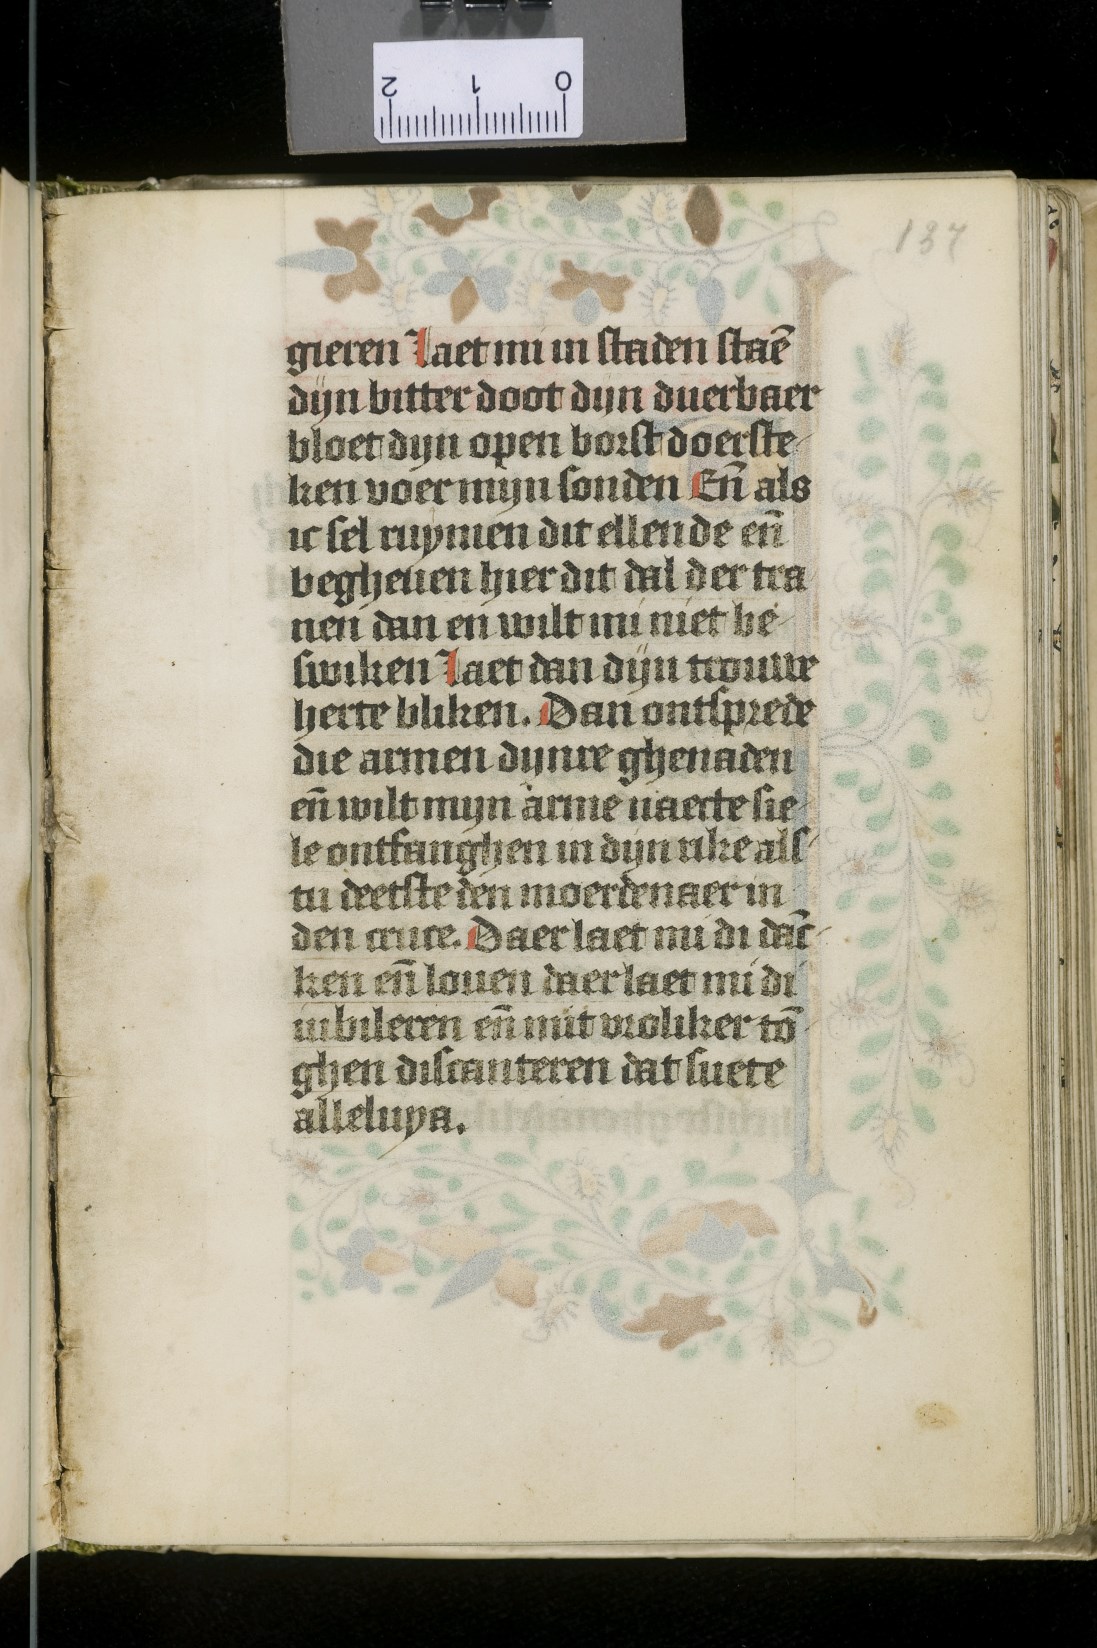 137
gieren Laet mi in staden staē
dijn bitter doot dijn duerbaer
bloet dijn open borst doerste
ken voer mijn sonden En̄ als
ic sel ruymen dit ellende en̄
begheuen hier dit dal der tra
nen dan en wilt mi niet be
swiken Laet dan dijn trouwe
herte bliken. Dan ontsprede
die armen dijnre ghenaden
en̄ wilt mijn arme naecte sie
le ontfanghen in dijn rike als
tu deetste den moerdenaer in
den cruce. Daer laet mi di dāc
ken en̄ louen daer laet mi di
iubileren en̄ mit vroliker tō
ghen discanteren dat suete
alleluya.
2 1 0